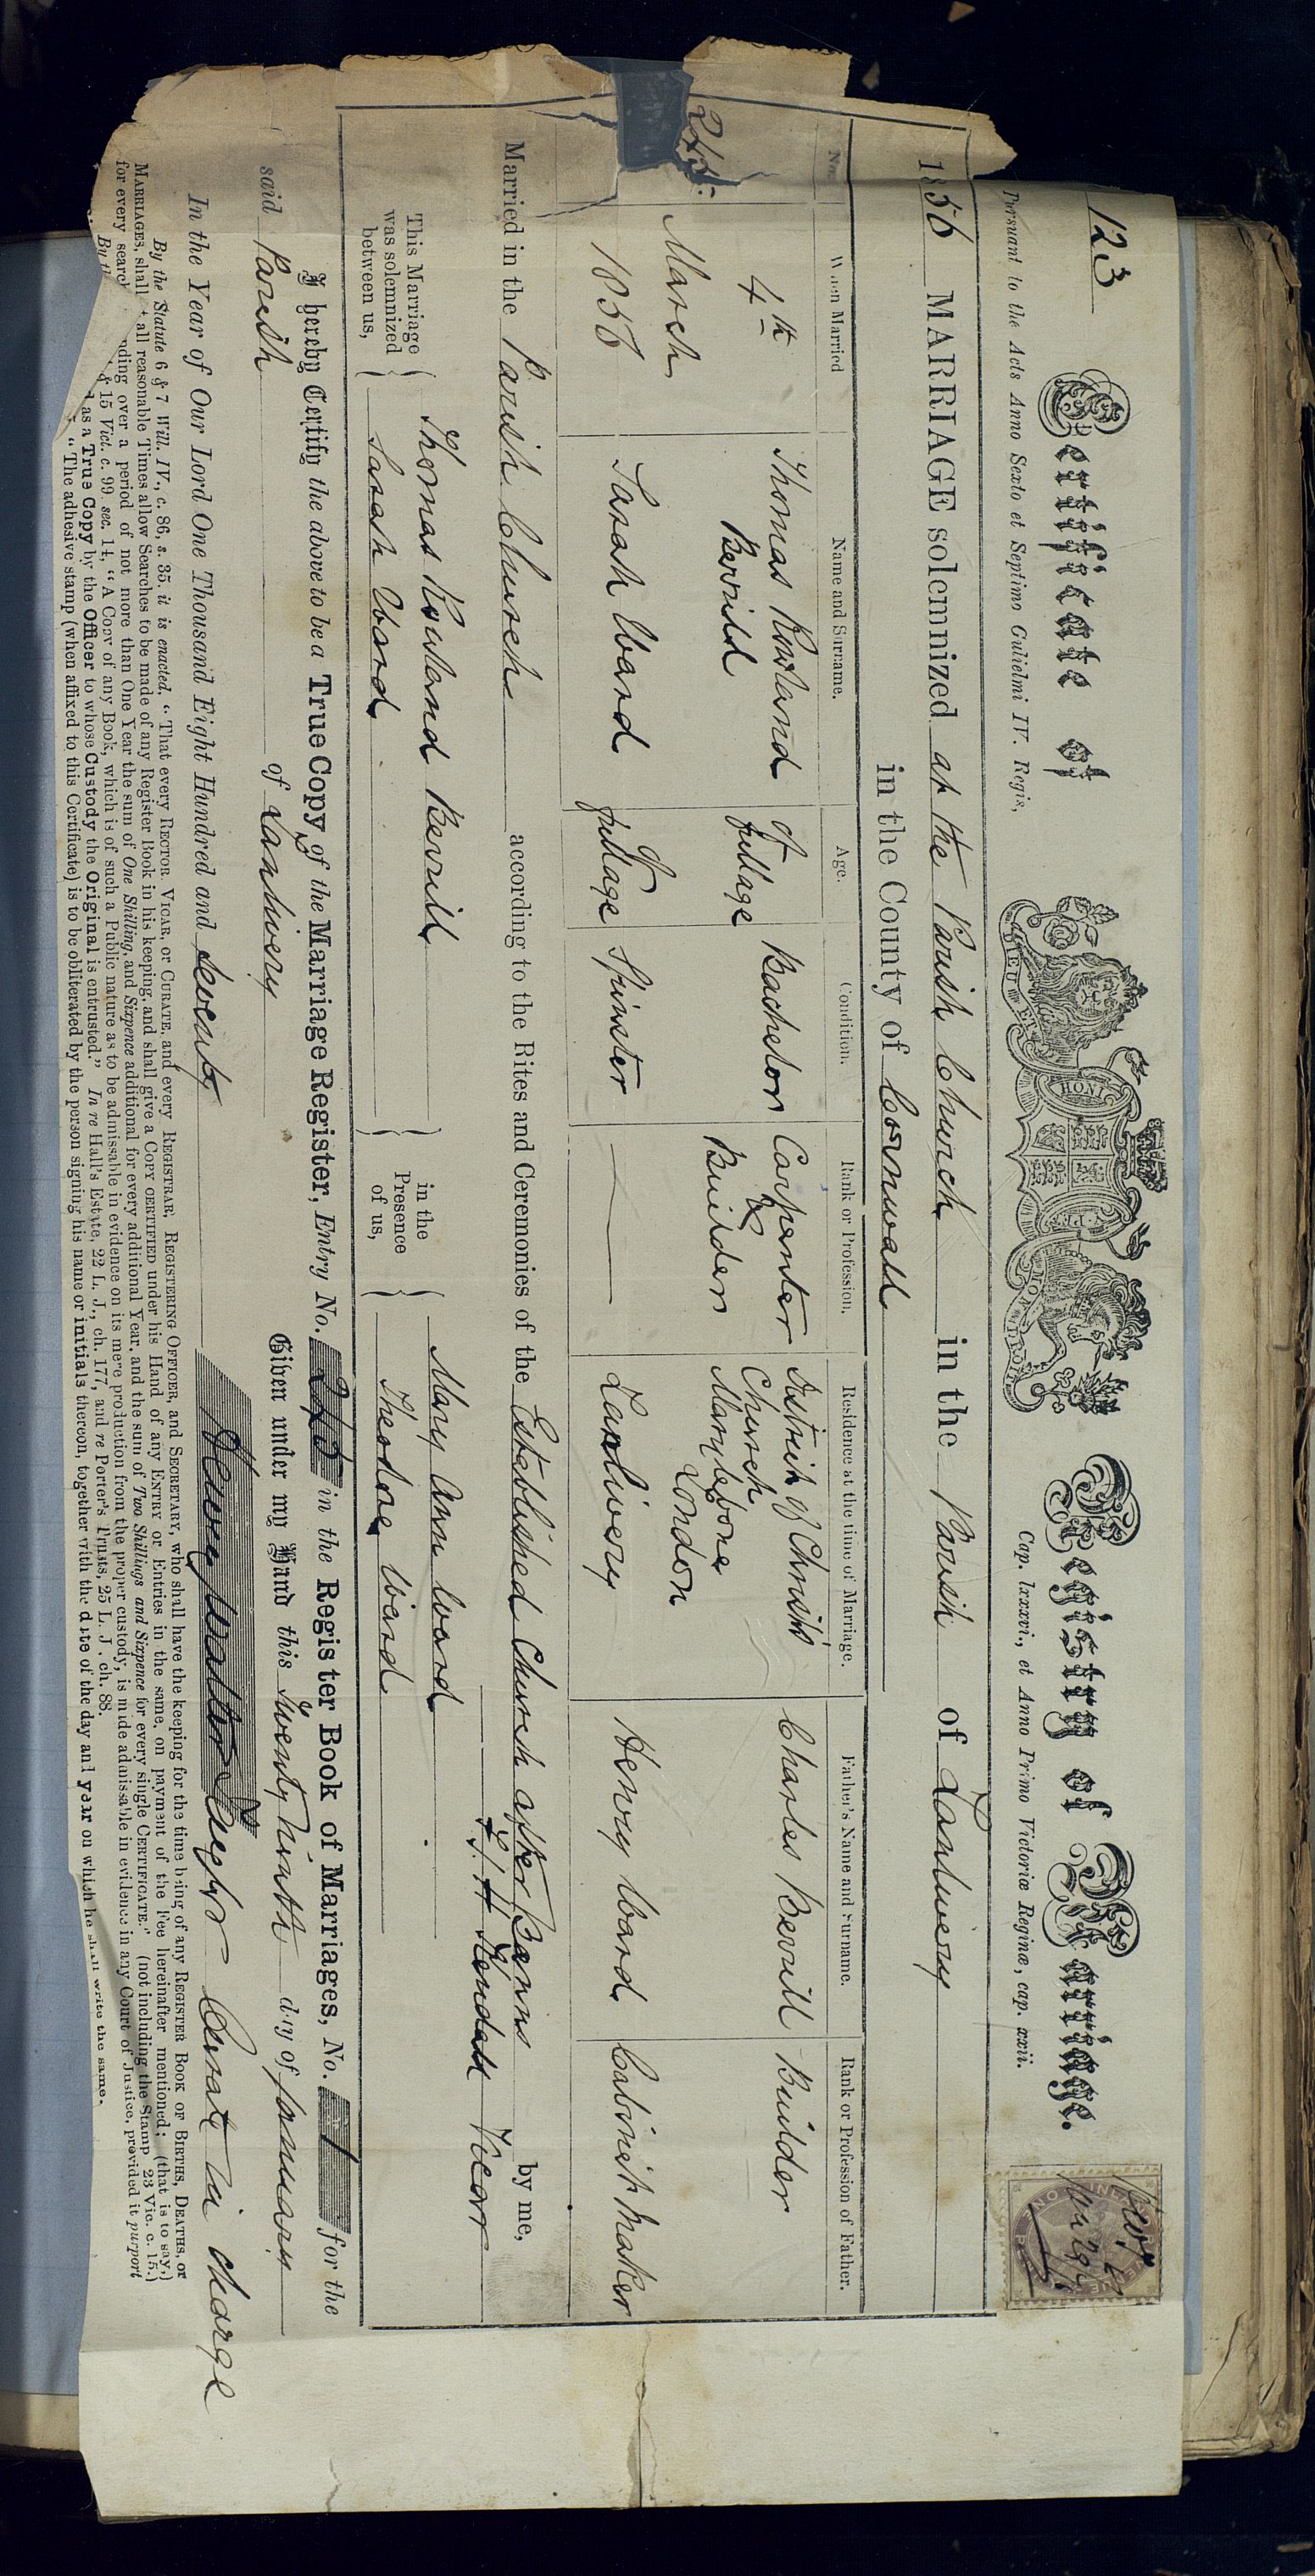 123
Certificate of Registry of Marriage.
Pursuant to the Acts Anno Sexto et Septimo Gulielmi IV. Regis, Cap. lxxxvi., et Anno Primo Victoriæ Reginæ, cap. xxii.
DIEU ET MON DROIT
HONI
1856 MARRIAGE solemnized at the Parish Church in the Parish of Lanlivery
in the County of Cornwall
No. When Married Name and Surname. Age. Condition. Rank or Profession. Residence at the time of Marriage. Father's Name and Surname. Rank or Profession of Father.
245: 4th March 1856 Thomas Rowland Bevrill of full age Bachelor Carpenter & Builder District of Christ Church Marylebone London Charles Bevrill Builder
Sarah Ward of full age Spinster — Lanlivery Henry Ward Cabinet Maker
Married in the Parish Church according to the Rites and Ceremonies of the Established Church after Banns by me,
Kendall Vicar
This Marriage was solemnized between us, { Thomas Rowland Bevrill } in the Presence of us, { Mary Ann Ward
Sarah Ward Theodore Ward
I hereby Certify the above to be a True Copy of the Marriage Register, Entry No. 245 in the Register Book of Marriages, No. 1 for the
said Parish of Lanlivery Given under my Hand this Twenty ninth day of January
In the Year of Our Lord One Thousand Eight Hundred and Seventy Henry Walter Curate in charge
By the Statute 6 & 7 Will. IV., c. 86, s. 35, it is enacted, "That every RECTOR, VICAR, or CURATE, and every REGISTRAR, REGISTERING OFFICER, and SECRETARY, who shall have the keeping for the time being of any REGISTER BOOK OF BIRTHS, DEATHS, or
MARRIAGES, shall at all reasonable Times allow Searches to be made of any Register Book in his keeping, and shall give a COPY CERTIFIED under his Hand of any ENTRY or Entries in the same, on payment of the Fee hereinafter mentioned; (that is to say,)
for every search nding over a period of not more than One Year the sum of One Shilling, and Sixpence additional for every additional Year, and the sum of Two Shillings and Sixpence for every single CERTIFICATE." (not including the Stamp 23 Vic. c. 15.)
By th & 15 Vict. c. 99. sec. 14, "A Copy of any Book, which is of such a Public nature as to be admissable in evidence on its mere production from the proper custody, is made admissable in evidence in any Court of Justice, provided it purport
d as a True Copy by the Officer to whose Custody the Original is entrusted." In re Hall's Estate, 22 L. J., ch. 177, and re Porter's Trusts, 25 L. J. ch. 88.
"The adhesive stamp (when affixed to this Certificate) is to be obliterated by the person signing his name or initials thereon, together with the date of the day and year on which he shall write the same.